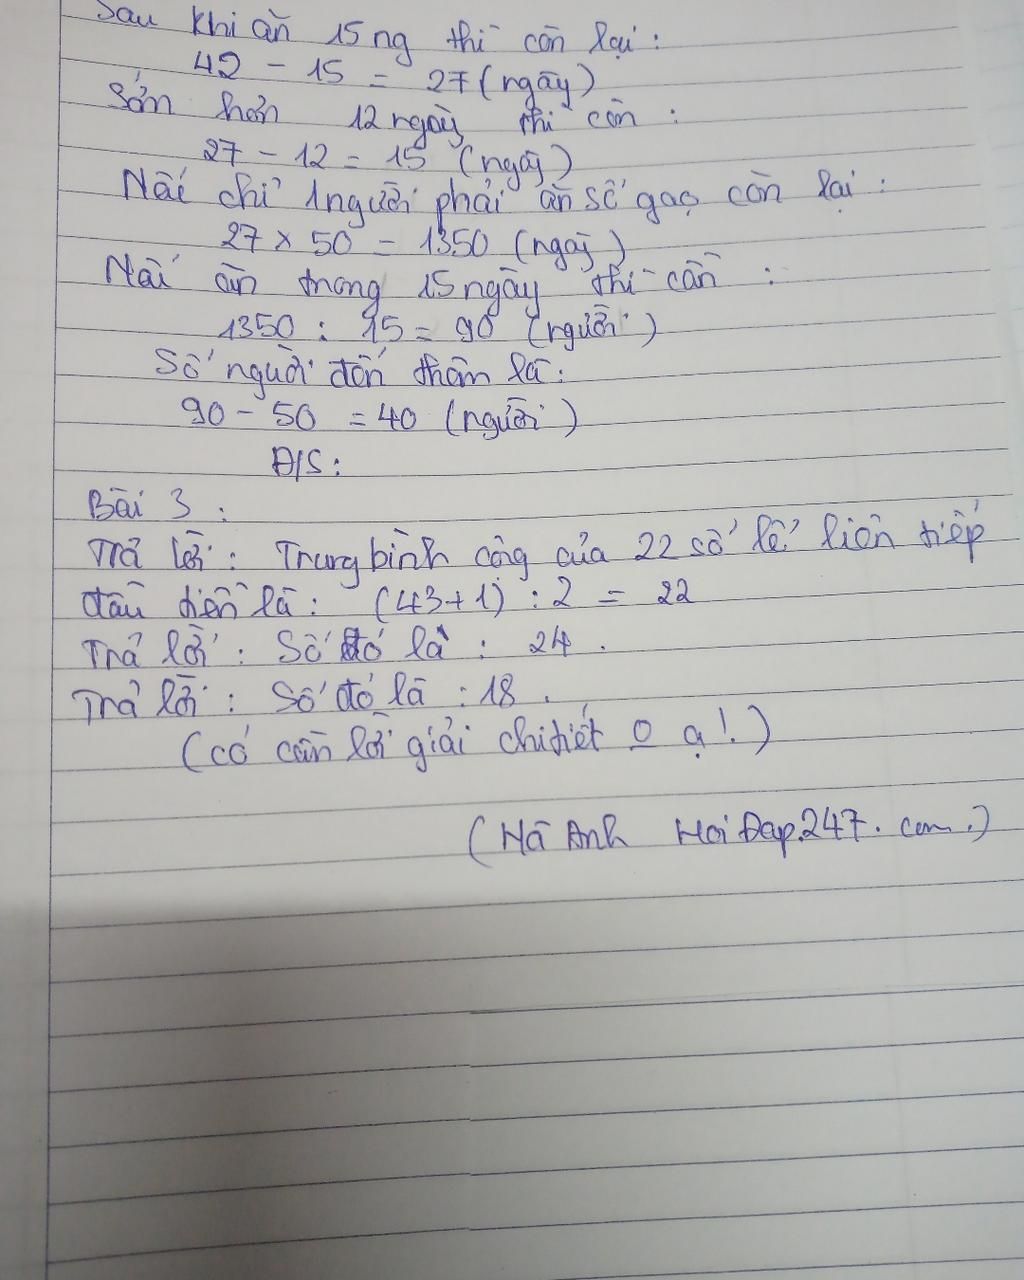 Sau khi ăn 15 ng thì còn lại :
42 - 15 = 27 (ngày)
Sớm hơn 12 ngày thì còn :
27 - 12 = 15 (ngày)
Nếu chỉ 1 người phải ăn số gạo còn lại :
27 x 50 = 1350 (ngày)
Nếu ăn trong 15 ngày thì cần :
1350 : 15 = 90 (người)
Số người đến thêm là :
90 - 50 = 40 (người)
Đ/S :
Bài 3 :
Trả lời : Trung bình cộng của 22 số lẻ liên tiếp
đầu tiên là : (43+1) : 2 = 22
Trả lời : Số đó là : 24 .
Trả lời : Số đó là : 18 .
(có cần lời giải chi tiết 0 ạ ! )
(Hà Anh Hoi Đap.247. com.)